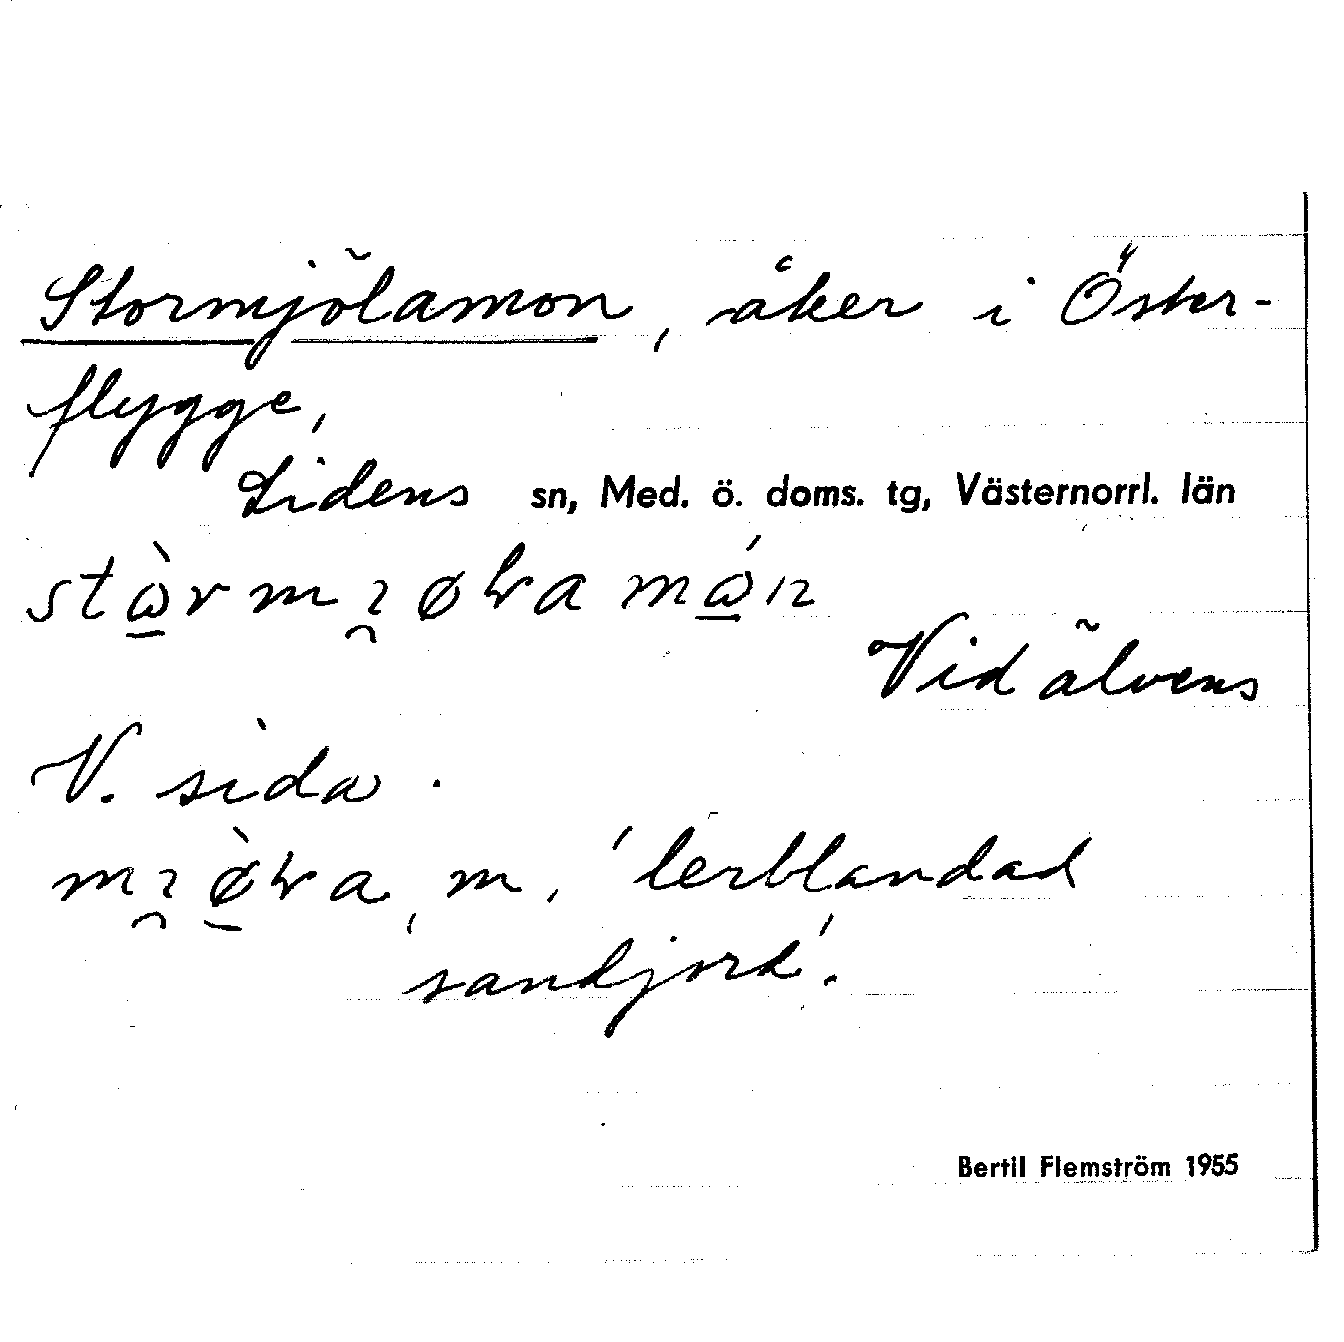 Stormjölamon, åker i Öster-
flygge,
Lidens sn, Med. ö. doms. tg, Västernorrl. län
Vid älvens
V. sida.
m, 'lerblandad
sandjord'.
Bertil Flemström 1955